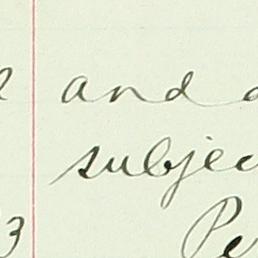 and
subjec
3 Pe